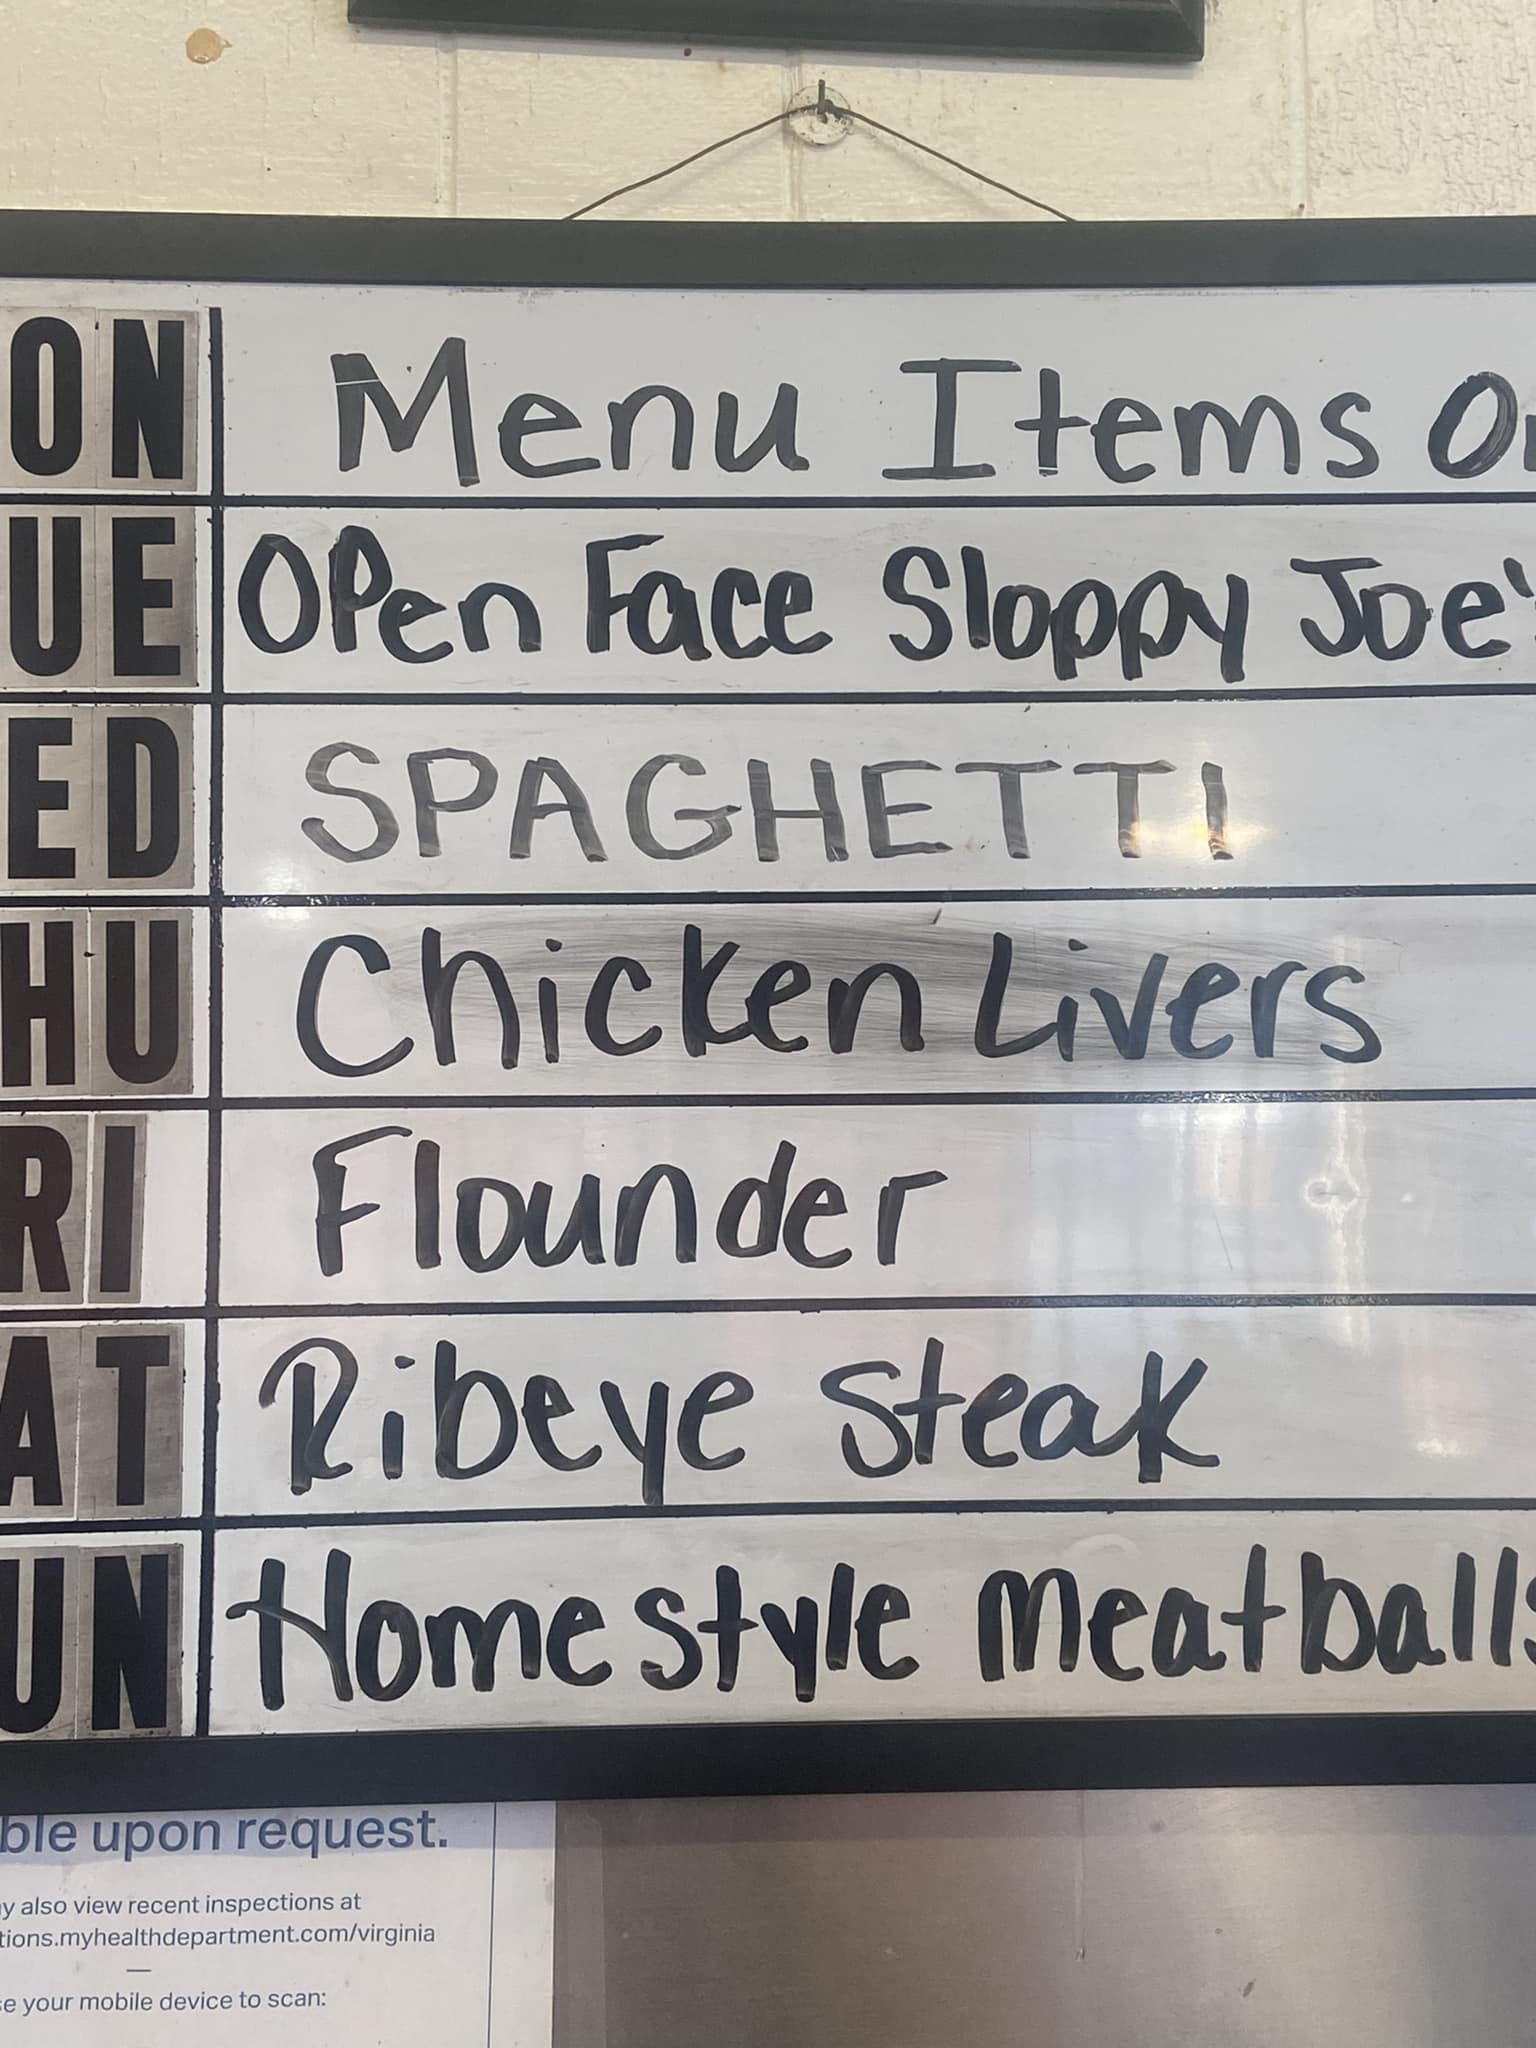 ON Menu Items O
UE Open Face Sloppy Joe'
ED SPAGHETTI
HU Chicken Livers
RI Flounder
AT Ribeye Steak
UN Homestyle Meatballs
ble upon request.
y also view recent inspections at
tions.myhealthdepartment.com/virginia
—
se your mobile device to scan: